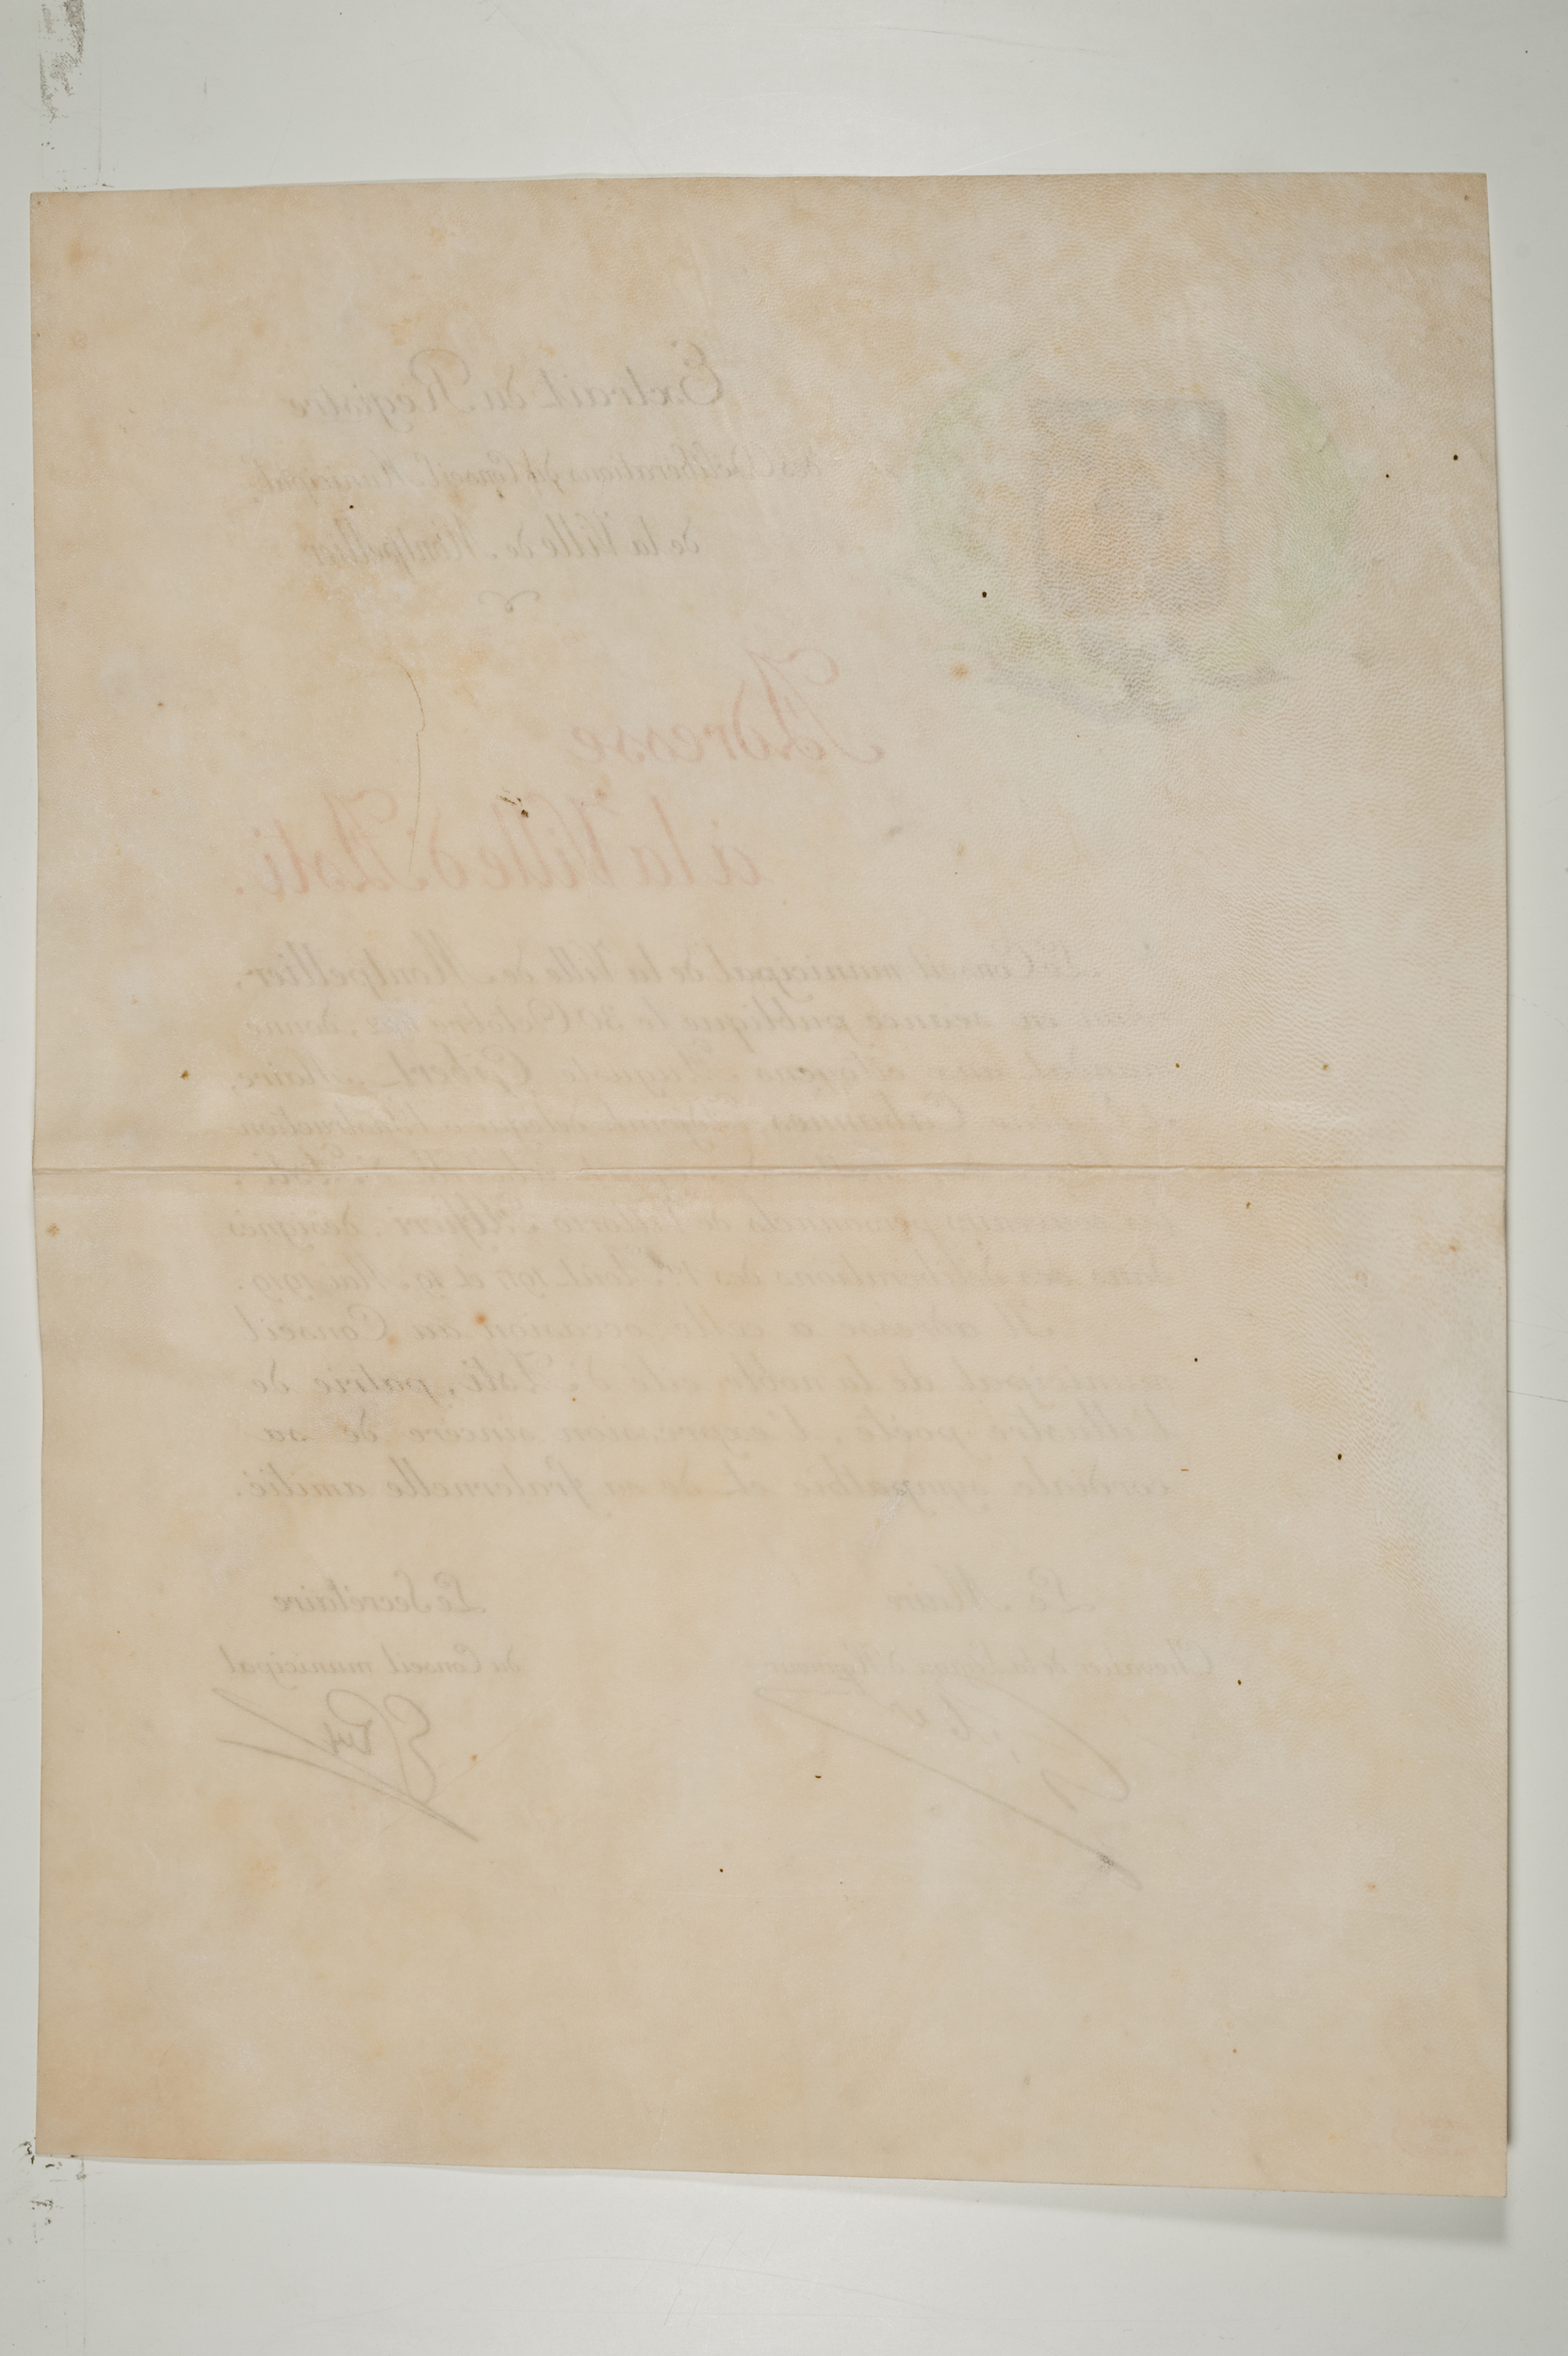 Extrait du Registre
des Délibérations du Conseil Municipal
de la Ville de Montpellier
Adresse
à la Ville d'Asti.
Le Conseil municipal de la Ville de Montpellier,
en séance publique le 30 Octobre donne
mandat aux citoyens Auguste Gibert, Maire,
Cabannes, Adjoint délégué à l'Instruction
d'Asti,
souvenirs personnels de Vittorio Alfieri, désignés
dans ses délibérations des 1er Août 1911 et 19 Mai 1919.
Il adresse à cette occasion au Conseil
municipal de la noble cité d'Asti, patrie de
l'illustre poète, l'expression sincère de sa
cordiale sympathie et de sa fraternelle amitié.
Le Maire
Chevalier de la Légion d'Honneur
Le Secrétaire
du Conseil municipal